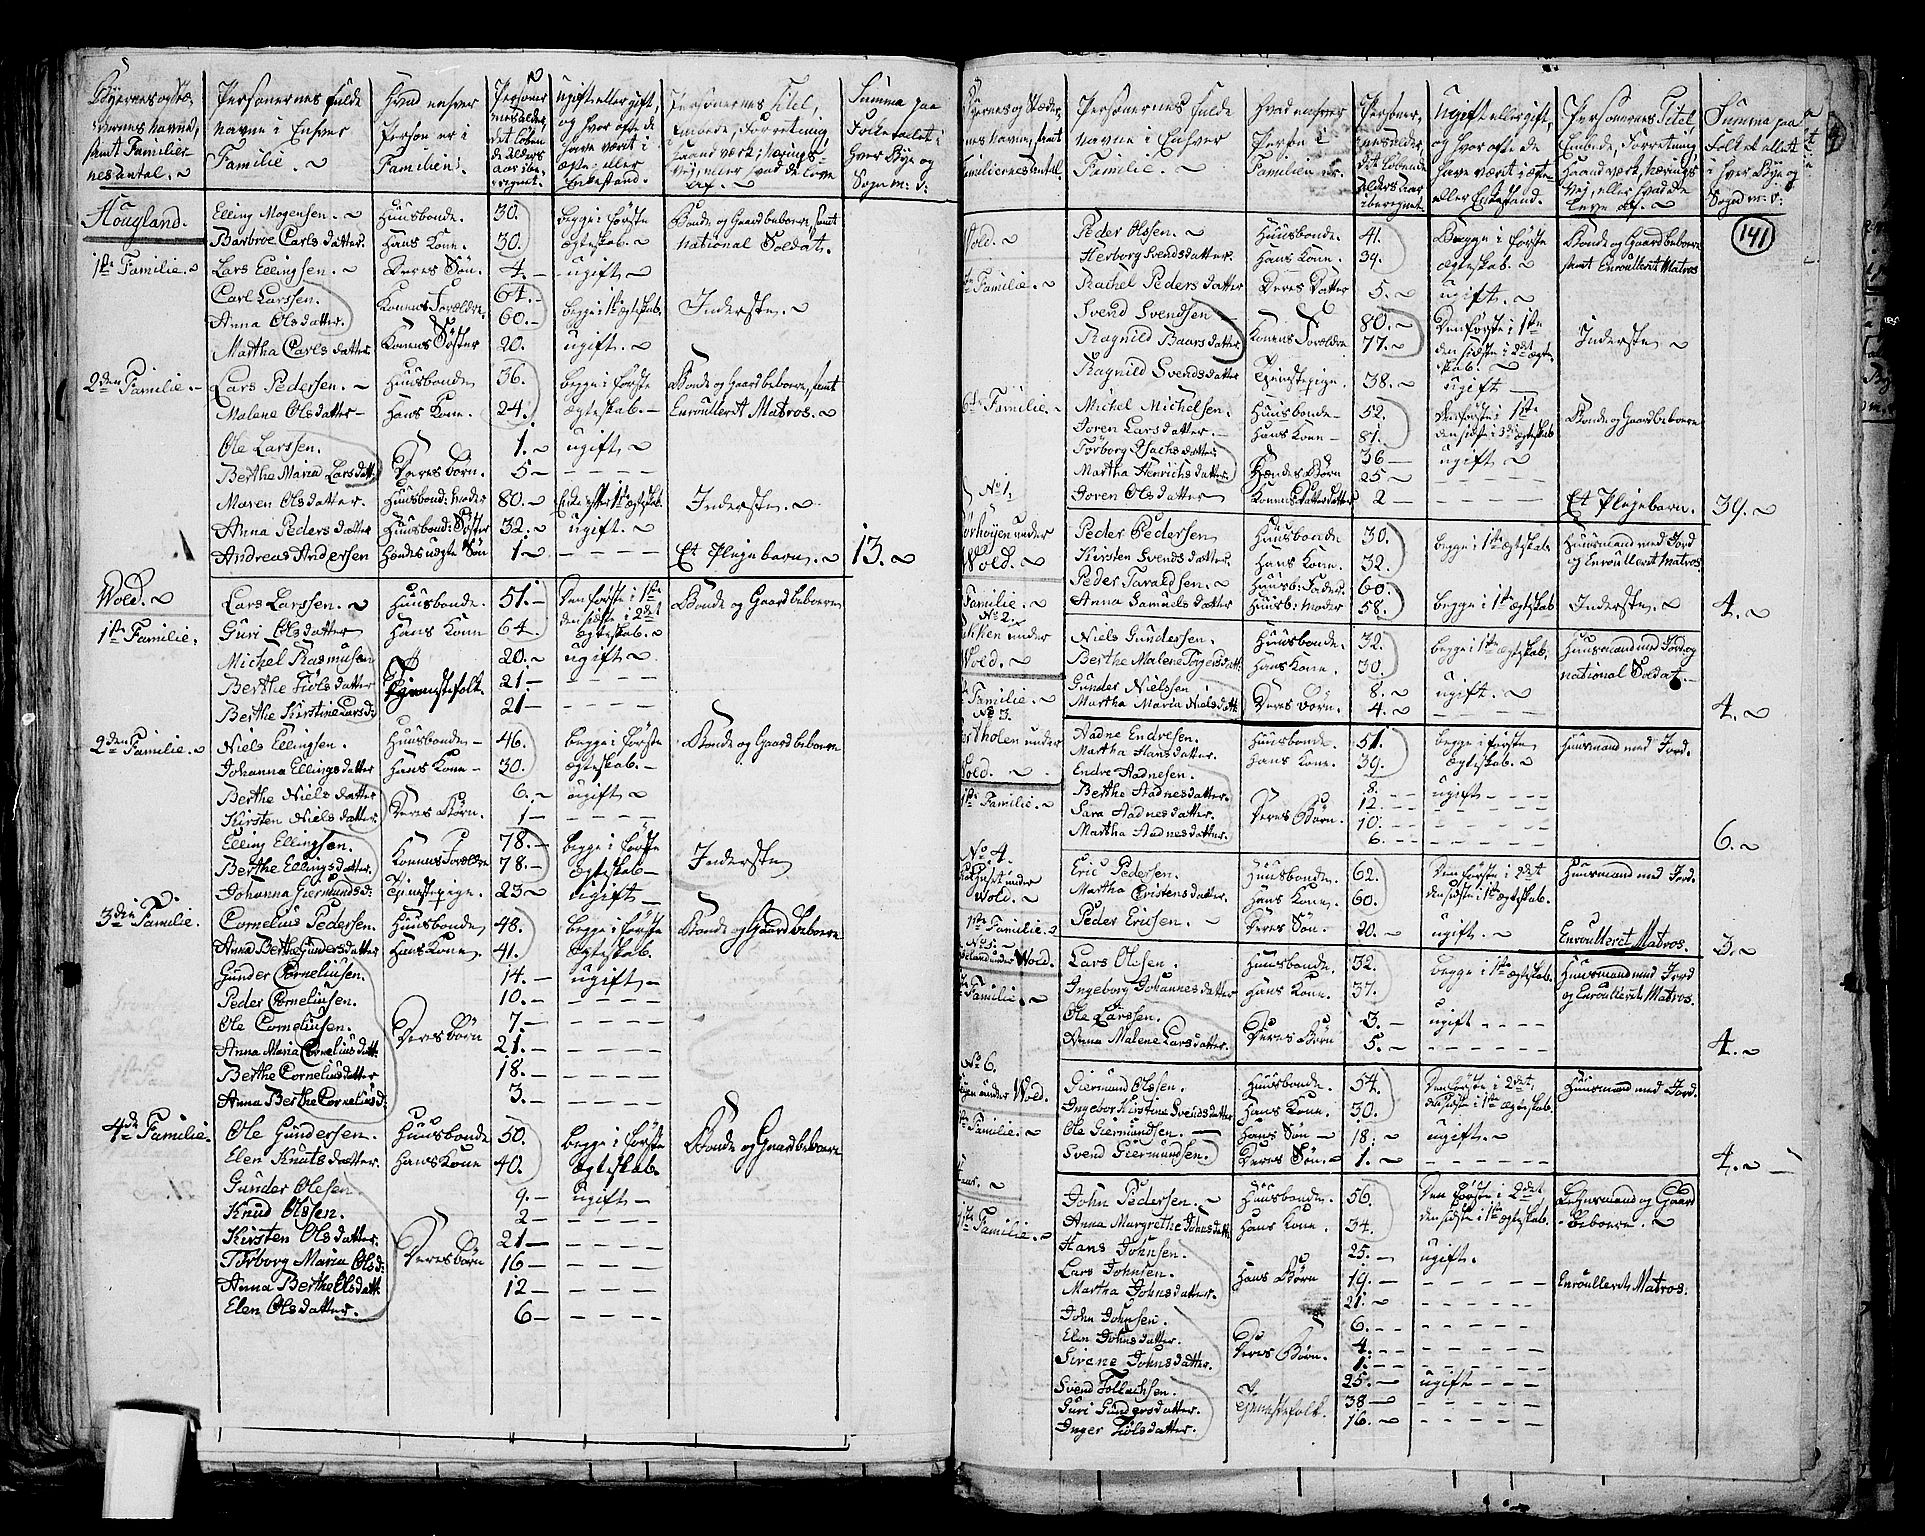 Personernes fulde
Navne i Enhver
Familie.
Hvad enhver
Person er i
Familien.
ugift eller gift,
og hvor ofte de
have værit i
Ægte- eller
Enkestand.
Personernes Titel,
Embede, Forretning,
Haandværk, Nærings-
vej, eller hvad de leve
af.
Summa paa
Folketallet i
hver Bye og
Sogn
Hougland.
Elling Mogensen. Huusbonde. 30. begge i første Bonde og Gaardbeboere, samt
Barbroe Carlsdatter. Hans Kone. 30. Ægteskab. national Soldat.
1ste Familie. Lars Ellingsen. Deres Søn. 4. ugift.
Carl Larssen. 64.
Konens Forældre. begge i 1ste Ægteskab. Inderster.
Anna Olsdatter. 60.
Martha Carlsdatter. Konens Søster 20. ugift.
2den Familie. Lars Pedersen. Huusbonde 36. begge i første Bonde og Gaardbeboere, samt
Malene Olsdatter Hans Kone. 24. Ægteskab. Enroulleret Matros.
Ole Larssen. 1. ugift
Berthe Maria Larsdatt: Deres Børn. 5 - - - -
Maren Olsdatter. Huusbond: Moder 80. Enke efter 1ste Ægteskab. Inderste.
Anna Pedersdatter Huusbond: Søster 32. ugift.
Andreas Andersen Hendes uægte Søn 1 - - - - Et Plejebarn. 13.
Wold. Lars Larssen. Huusbonde. 51. Den første i 1ste Bonde og Gaardbeboere
1ste Familie. Guri Olsdatter Hans Kone 64. den sidste i 2det
Ægteskab.
Michel Rasmusen 20. ugift
Berthe Tiølsdatter Tjenestefolk. 21 - - - -
Berthe Kirstine Larsd: 21 - - - -
2den Familie. Niels Ellingsen. Huusbonde 46. begge i første Bonde og Gaardbeboere
Johanna Ellingsdatter Hans Kone 30. Ægteskab.
Berthe Nielsdatter 6. ugift
Kirsten Nielsdatter. Deres Børn. 1 - - - -
Elling Ellingsen. 78. begge i første
Berthe Ellingsdatter. Konens Forældre 78. Ægteskab Inderster
Johanna Giermundsd: Tjenestepige. 23 ugift
3die Familie. Cornelius Pedersen. Huusbonde 48. begge i første Bonde og Gaardbeboere
Anna Berthe Gundersdatter Hans Kone 41. Ægteskab.
Gunder Corneliusen. 14. ugift
Peder Corneliusen. 10. - - - -
Ole Corneliusen. 7 - - - -
Deres Børn
Anna Maria Corneliusdatt: 21. - - - -
Berthe Corneliusdatter 18. - - - -
Anna Berthe Corneliusd: 3. - - - -
4de Familie. Ole Gundersen. Huusbonde 50. begge i første Bonde og Gaardbeboere
Elen Knutsdatter. Hans Kone 40. Ægteskab.
Gunder Olesen 9. ugift
Knud Olssen. 2 - - - -
Kirsten Olsdatter. 21 - - - -
Deres Børn
Torborg Maria Olsd: 16 - - - -
Anna Berthe Olsdatt: 12 - - - -
Elen Olsdatter. 6 - - - -
Personernes fulde
Navne i Enhver
Familie.
Hvad enhver
Person i
Familien er.
Ugift eller gift,
og hvor ofte de
have værit i Ægte-
eller Enkestand.
Personernes Titel
Embede, Forretning,
Haandværk, Nærings
Vej, eller hvad de
leve af.
Summa paa
Folketallet
i hver Bye og
Sogn
141
Wold. Peder Olssen. Huusbonde. 41. Begge i første Bonde og Gaardbeboere
Herborg Svendsdatter. Hans Kone. 34. Ægteskab. samt Enroulleret Matros
Familie. Rachel Pedersdatter Deres Datter 5. ugift.
Svend Svendsen 80. Den første i 1ste
Ragnild Baarsdatter Konens Forældre 77. den sidste i 2det Ægte- Inderster
skab.
Ragnild Svendsdatter Tjenestepige. 38. Ugift
6te Familie. Michel Michelsen. Huusbonde 52. Den første i 1ste Bonde og Gaardbeboere
Joren Larsdatter. Hans Kone 81. den sidste i 3die Ægteskab
Torborg Isachsdatter 36 ugift
Martha Henrichsdatter Hendes Børn 25 - - - -
No 1. Joren Olsdatter Konens Datterdatter 2 - - - - Et Plejebarn. 39.
under Peder Pedersen Huusbonde 30. Huusmand med Jord
Wold. Kirsten Svendsdatter Hans Kone. 32. begge i 1ste Ægteskab og Enroulleret Matros
Peder Taraldsen. Huusb: Fader 60.
Familie. Anna Samuelsdatter Huusb: Moder 58. begge i 1ste Ægteskab Inderster 4.
No 2.
under Niels Gundersen. Huusbonde. 32. Huusmand med Jord og
Wold. Berthe Malene Torgersdatt: Hans Kone. 30. begge i 1ste Ægteskab. national Soldat.
Familie Gunder Nielssen 8. ugift.
Martha Maria Nielsdatt: Deres Børn. 4. - - - - 4.
No 3.
under Aadne Endresen. Huusbonde. 51. begge i første Huusmand med Jord.
Wold. Martha Hansdatter. Hans Kone. 39. Ægteskab.
Endre Aadnesen. 8.
1ste Familie. Berthe Aadnesdatter. 12. ugift - - - -
Sara Aadnesdatter. Deres Børn. 10. - - - -
Martha Aadnesdatter. 6. - - - - 6.
No 4.
under Eric Pedersen. Huusbonde. 62. Den første i 2det Huusmand med Jord.
Wold. Martha Cristensdatter. Hans Kone. 60. den sidste i 1ste Ægteskab.
1ste Familie. Peder Ericsen. Deres Søn. 20. ugift. Enroulleret Matros. 3.
No 5.
under Wold. Lars Olesen. Huusbonde. 32. begge i 1ste Ægteskab. Huusmand med Jord
Familie. Ingeborg Johannesdatter Hans Kone. 37. og Enroulleret Matros.
Ole Larssen. 3. ugift - - - -
Anna Malene Larsdatter. Deres Børn 5. - - - - 4.
No 6.
under Wold. Giermund Olssen. Huusbonde. 54. Den første i 2det, Huusmand med Jord.
Ingebor Kirstine Svendsdatter Hans Kone. 30. den sidste i 1ste Ægteskab.
Familie. Ole Giermundsen. Hans Søn 18. ugift.
Svend Giermundsen. Deres Søn. 1. - - - - 4.
John Pedersen. Huusbonde. 56. Den første i 2det Lehnsmand og Gaard
1ste Familie. Anna Margrethe Johnsdatt: Hans Kone. 34. den sidste i 1ste Ægteskab. beboere.
Hans Johnsen. 25. ugift.
Lars Johnsen. Hans Børn 19. - - - - Enroulleret Matros.
Martha Johnsdatter. 21. - - - -
John Johnsen. 6. - - - -
Elen Johnsdatter. Deres Børn. 4. - - - -
Sirene Johnsdatter. 1. - - - -
Svend Tollachsen. 25. ugift - - -
Guri Gundersdatter. Tjenestefolk. 38 - - - -
Inger Tiølsdatter. 16. - - - -